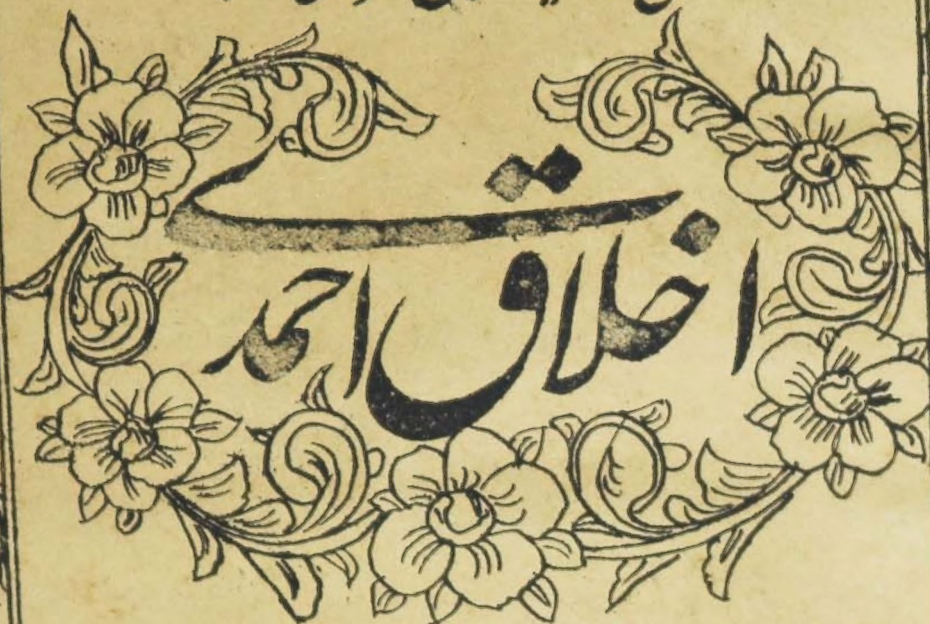 اخلاق احمدی